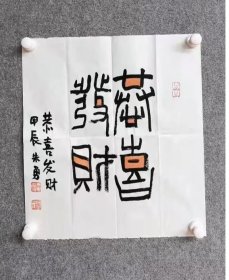 恭喜
發財
恭喜发财
甲辰朱